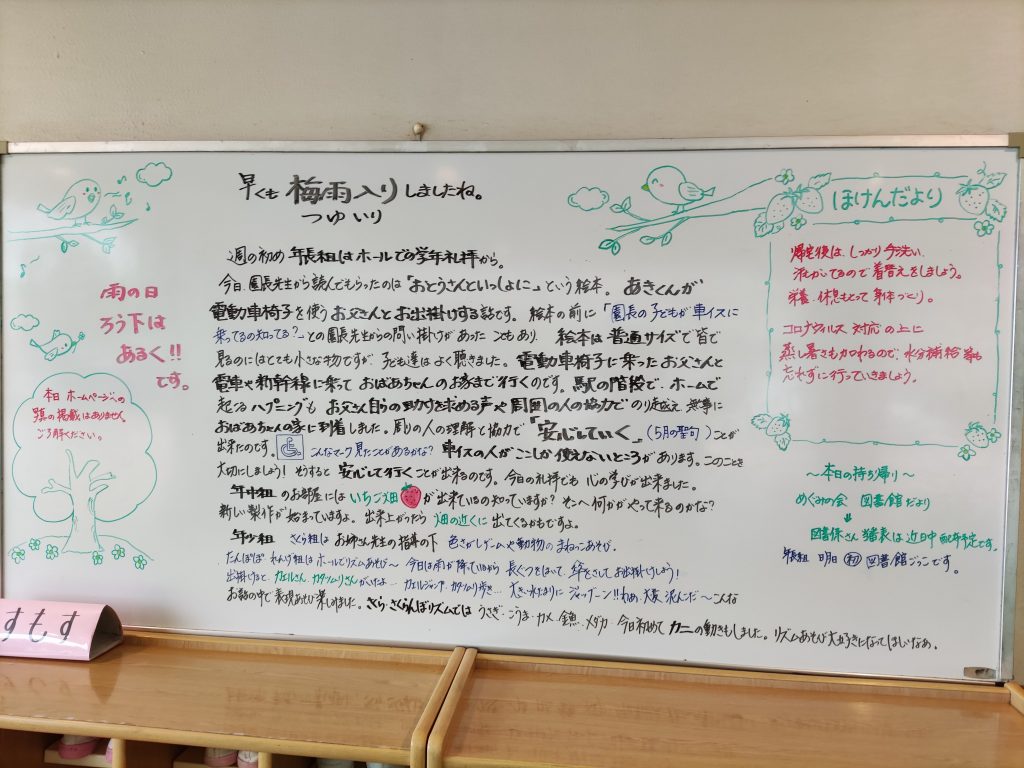 早くも 梅雨入り しましたね。
つゆ いり
雨の日
ろう下は
あるく!!
です。
本日 ホームページへの
写真の掲載はありません。
ご了解ください。
週の初め 年長組はホールでの学年礼拝から。
今日、園長先生から読んでもらったのは「おとうさんといっしょに」という絵本。あきくんが
電動車椅子を使うお父さんとお出掛けする話です。絵本の前に「園長の子どもが車イスに
乗ってるの知ってる?」との園長先生からの問い掛けがあったこともあり 絵本は普通サイズで皆で
見るのにはとても小さな物ですが、子ども達はよく聴きました。電動車椅子に乗ったお父さんと
電車や新幹線に乗って おばあちゃんのお家まで行くのです。駅の階段で、ホームで
起こるハプニングも お父さん自らの助けを求める声や周囲の人の協力でのり越え 無事に
おばあちゃんの家に到着しました。周りの人の理解と協力で「安心していく」(5月の聖句)ことが
出来たのです。 こんなマーク見たことがあるかな? 車イスの人がここしか使えないところがあります。このことを
大切にしましょう! そうすると 安心して行くことが出来るのです。今日の礼拝も 心の学びが出来ました。
年中組 のお部屋には いちご畑 が出来ているの知っていますか? そこへ何かがやって来るのかな?
新しい製作が始まっていますよ。出来上がったら 畑の近くに出てくるかもですよ。
年少組 さくら組は お姉さん先生の指導の下 色さがしゲームや動物のまねっこあそび。
たんぽぽ れんげ組は ホールでリズムあそび〜 今日は雨が降っているから 長ぐつをはいて、傘をさしてお出掛けしよう!
出掛けると カエルさん カタツムリさんがいたよ… カエルジャンプ カタツムリ歩き… 大きい水たまりに ジャップーン!!わぁ、大変 沈んだ〜こんな
お話の中で表現あそび楽しみました。さくら・さくらんぼリズムでは うさぎ・こうま・カメ・金魚・メダカ・今日初めて カニの動きもしました。リズムあそび大好きになってほしいなぁ。
ほけんだより
帰宅後は、しっかり手洗い
汗もかいてるので着替えをしましょう。
栄養・休息もとって身体づくり。
コロナウィルス 対応の上に
蒸し暑さも加わるので、水分補給等も
忘れずに行っていきましょう。
〜本日の持ち帰り〜
めぐみの会 図書館だより
図書係さん 当番表は近日中 配布予定です。
年長組 明日 初 図書館ごっこです。
すもす